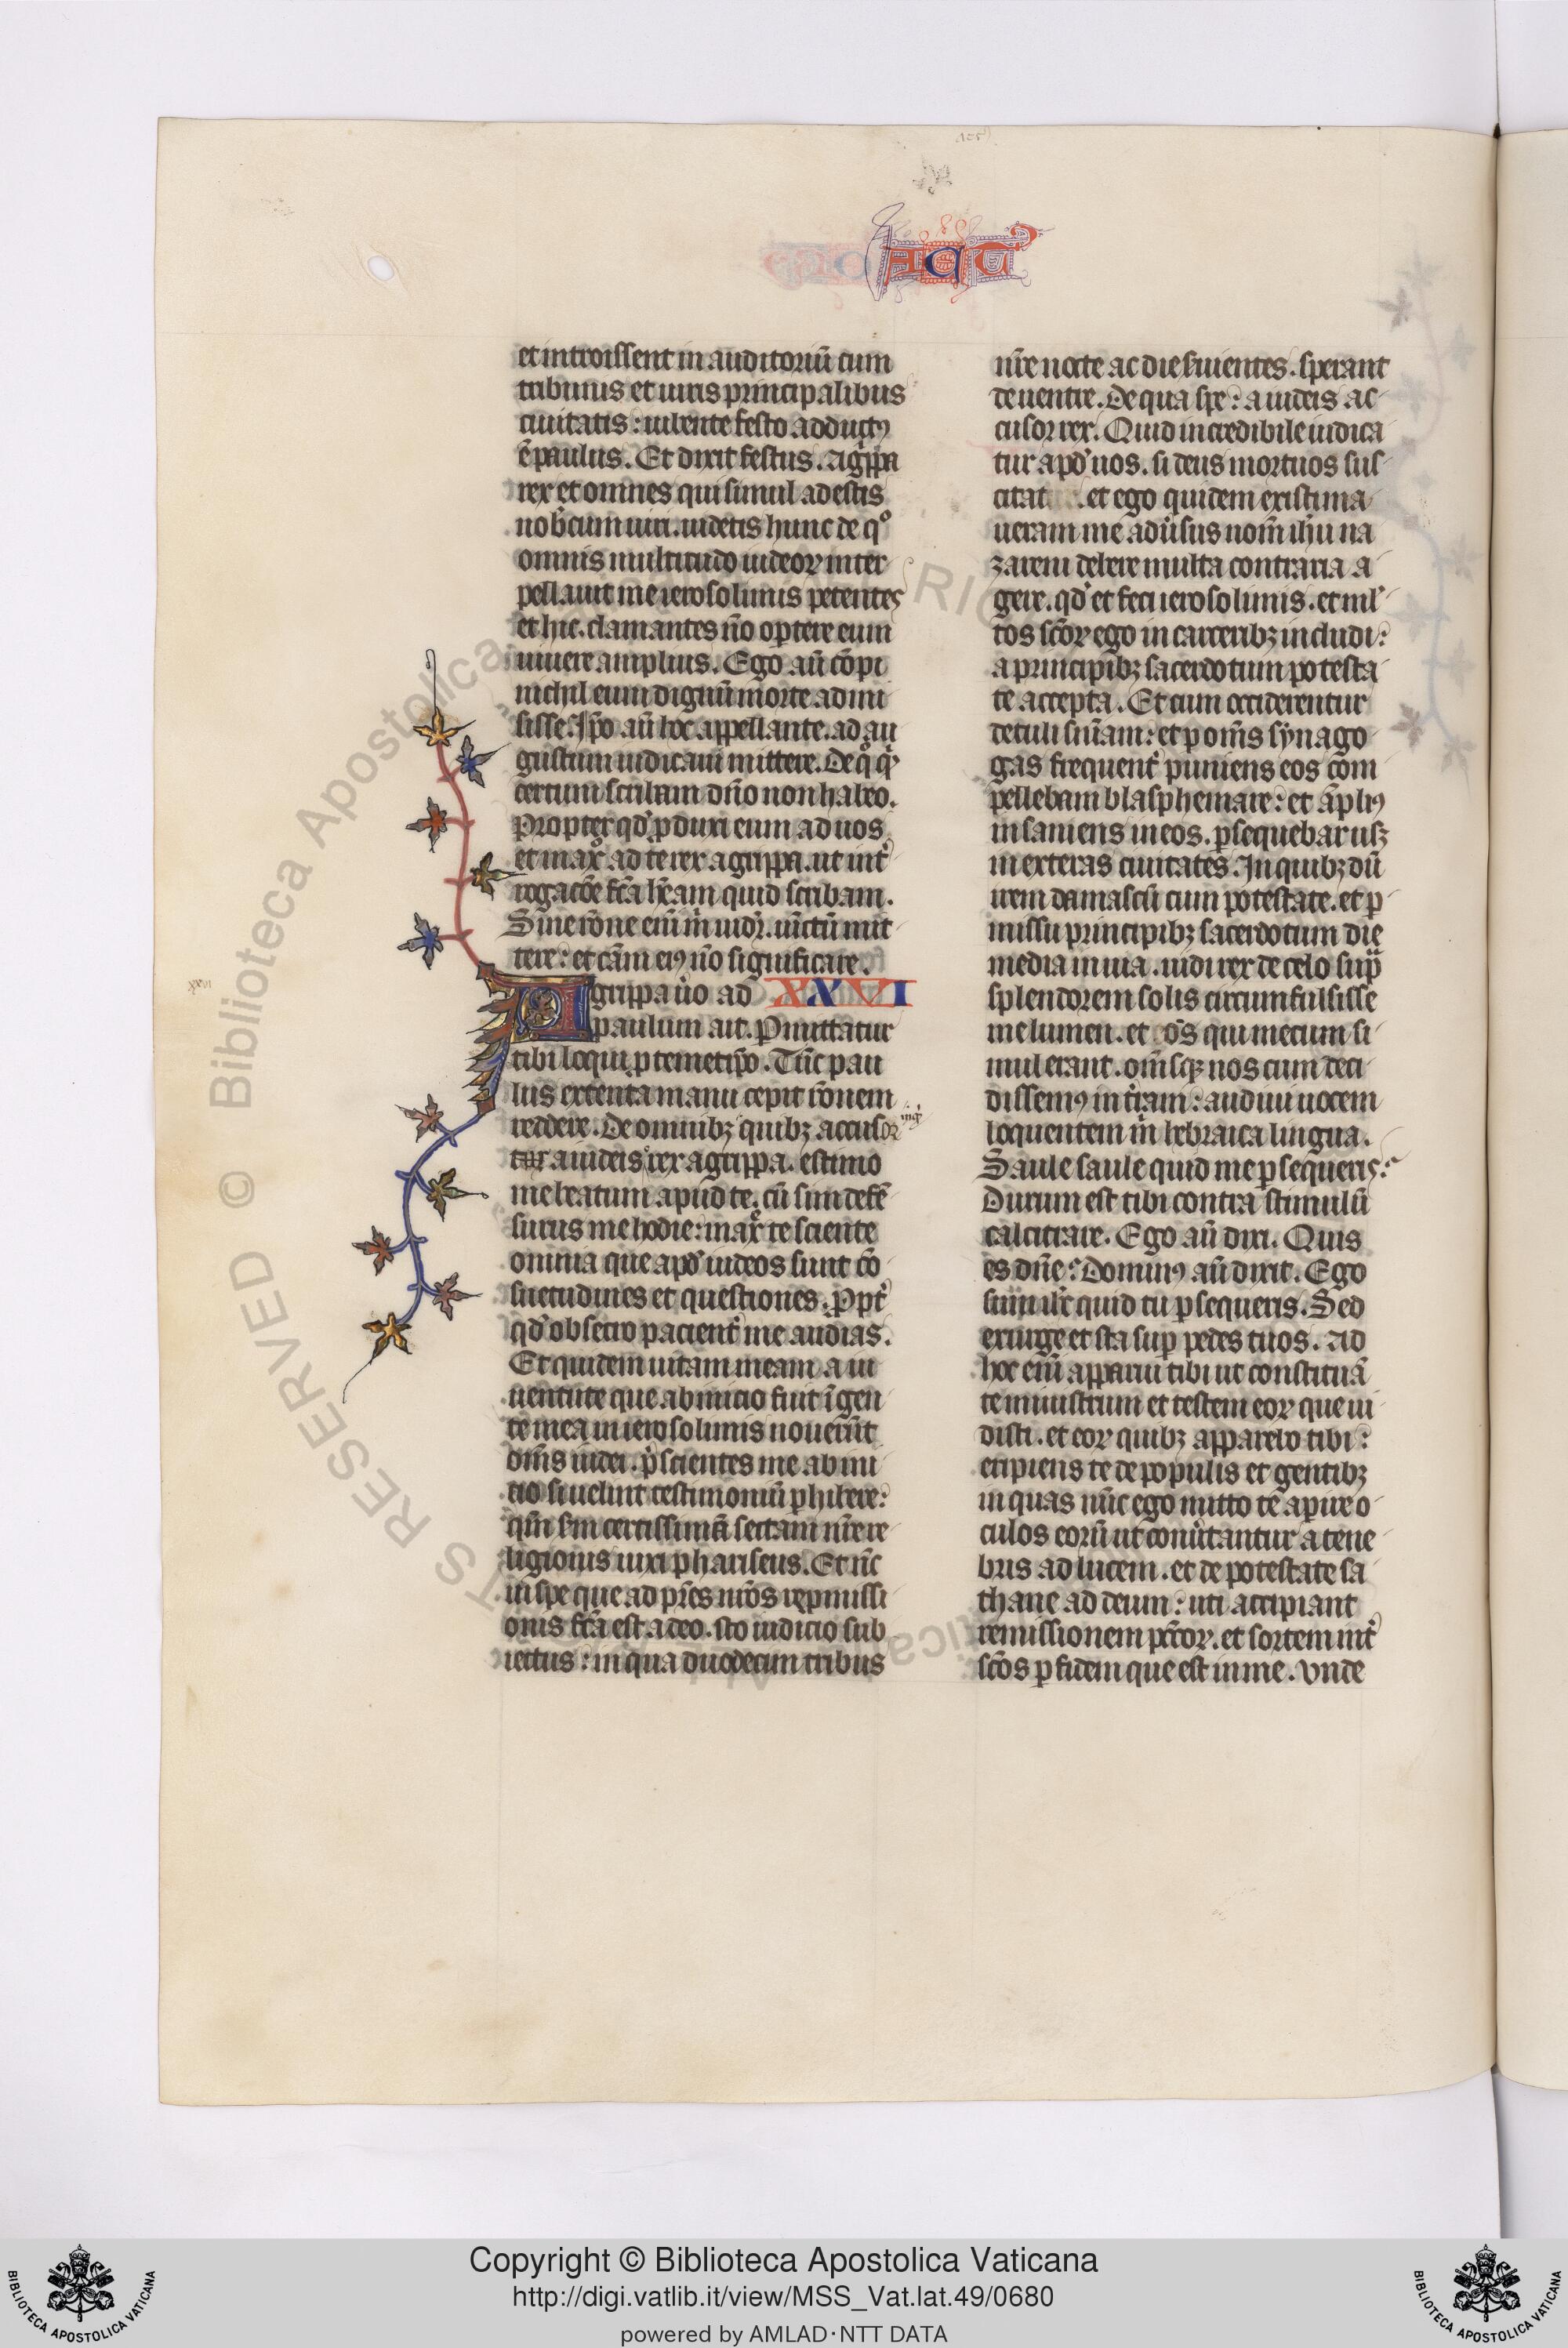 Actū
et introissent in auditoriū cum
tribunis et uiris principalibus
ciuitatis: iubente festo adductꝰ
ē paulus. Et dixit festus. Agͥppa
rex et omnes qui simul adestis
nob̄cum uiri. uidetis hunc de qͦ
omnis multitudo iudeoꝝ inter
pellauit me ierosolimis petentes
et hic. clamantes nō oportere eum
uiuere amplius. Ego aū cōpi
nichil eum dignū morte admi
sisse. Ip̄o aū hoc appellante. ad au
gustum iudicaui mittere. De qͦ qͥd
certum scribam dn̄o non habeo.
Propter qd̓ ꝓduxi eum ad uos
et maxͦ ad te rex agrippa. ut int̓
rogacōe fc̄a hēam quid scribam.
Sine rōne enī m̓ uidr̄. uīctū mit
tere: et cām eiꝰ nō significare.
Agrippa u̓o ad XXVI
paulum ait. Ꝑmittatur
tibi loqui ꝓ temetip̄o. Tūc pau
lus extenta manu cepit rōnem
reddere. De omnibꝫ quibꝫ accusor
a iudeis rex agrippa. estimo
me beatum apud te. cū sim defē
surus me hodie: maxͦ te sciente
omnia que apd̓ iudeos sunt cō
suetudines et questiones. Ꝓpt̓
qd̓ obsecro pacient̓ me audias.
Et quidem uitam meam a iu
uentute que ab inicio fuit ī gen
te mea in ierosolimis nouerūt
om̄s iudei. p̓scientes me ab ini
cio si uelint testimoniū ꝑhibere:
qm̄ sm̄ certissimā sectam nr̄e re
ligionis uixi phariseus. Et nūc
in spe que ad pr̄es nr̄os repmissi
onis fc̄a est a deo. sto iudicio sub
iectus: in qua duodecim tribus
nr̄e nocte ac die seruientes. sperant
deuenire. De qua spe: a iudeis ac
cusor rex. Quid incredibile iudica
tur apd̓ uos. si deus mortuos sus
citat. et ego quidem existima
ueram me adūsus nom̄ ih̄u na
zareni debere multa contraria a
gere. qd̓ et feci ierosolimis. et ml̓
tos sc̄oꝝ ego in carceribꝫ inclusi:
a principibꝫ sacerdotum potesta
te accepta. Et cum occiderentur
detuli sn̄iam: et ꝑ om̄s synago
gas frequent̓ puniens eos com
pellebam blasphemare: et āpliꝰ
insaniens in eos. ꝑsequebar usqꝫ
in exteras ciuitates. In quibꝫ dū
irem damascū cum potestate. et ꝑ
missu principibꝫ sacerdotum die
media in uia. uidi rex de celo sup̄
splendorem solis circumfulsisse
me lumen. et eos qui mecum si
mul erant. om̄sqꝫ nos cum deci
dissemꝰ in tr̄am: audiui uocem
loquentem m̓ hebraica lingua.
Saule saule quid me ꝑsequeris:
Durum est tibi contra stimulū
calcitrare. Ego aū dixi. Quis
es dn̄e? Dominꝰ aū dixit. Ego
sum ih̄c quid tu ꝑsequeris. Sed
exurge et sta suꝑ pedes tuos. Ad
hoc enī apparui tibi ut constituā
te ministrum et testem eoꝝ que ui
disti. et eoꝝ quibꝫ apparebo tibi:
eripiens te de populis et gentibꝫ
in quas nūc ego mitto te aperire o
culos eorū ut conūtantur a tene
bris ad lucem. et de potestate sa
thane ad deum: uti accipiant
remissionem pcc̄oꝝ. et sortem int̓
sc̄os ꝑ fidem que est in me. Vnde
Copyright © Biblioteca Apostolica Vaticana
http://digi.vatlib.it/view/MSS_Vat.lat.49/0680
powered by AMLAD·NTT DATA
BIBLIOTECA APOSTOLICA VATICANA
BIBLIOTECA APOSTOLICA VATICANA